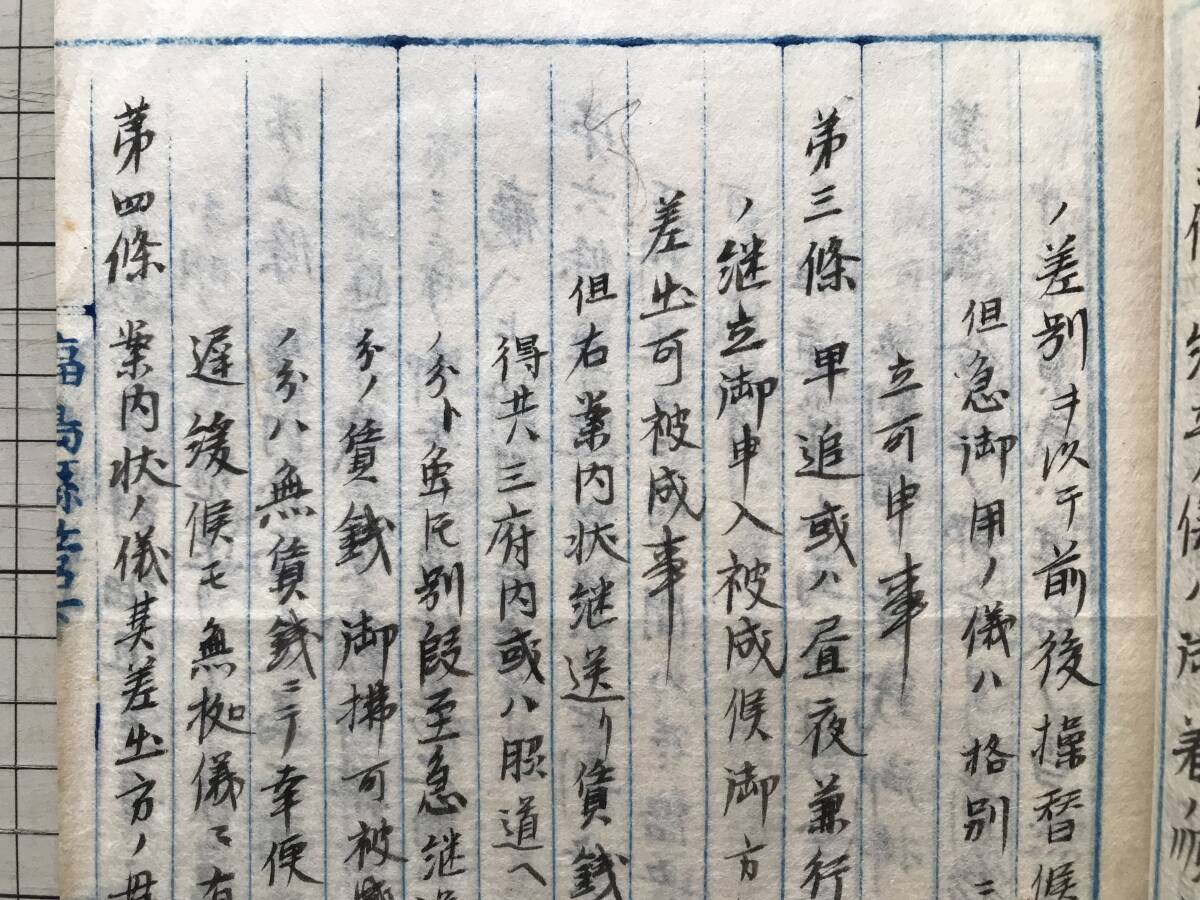 ノ差別ヲ以テ前後操替候
但急御用ノ儀ハ格別ニ
立可申事
第三條 早追或ハ昼夜兼行
ノ継立御申入被成候御方
差出可被成事
但右案内状継送リ賃銭
得共三府内或ハ脇道ヘ
ノ分ト雖モ別段至急継送
分ノ賃銭御拂可被成
ノ分ハ無賃銭ニテ幸便
遅緩候モ無拠儀ニ有
第四條 案内状ノ儀其差出方ノ
福島縣